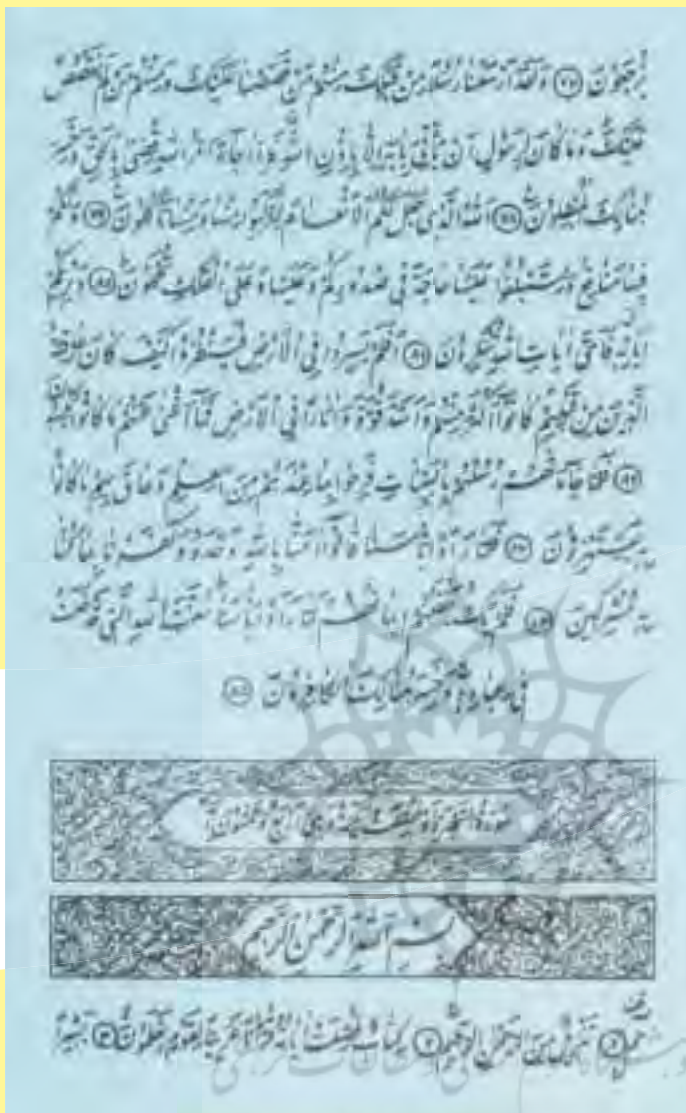 يُرْجَعُونَ ﴿۷۷﴾ وَلَقَدْ اَرْسَلْنَا رُسُلًا مِنْ قَبْلِكَ مِنْهُمْ مَنْ قَصَصْنَا عَلَيْكَ وَمِنْهُمْ مَنْ لَمْ نَقْصُصْ
عَلَيْكَ وَمَا كَانَ لِرَسُولٍ اَنْ يَأْتِيَ بِاٰيَةٍ اِلَّا بِاِذْنِ اللّٰهِ فَاِذَا جَاءَ اَمْرُ اللّٰهِ قُضِيَ بِالْحَقِّ وَخَسِرَ
هُنَالِكَ الْمُبْطِلُونَ ﴿۷۸﴾ اَللّٰهُ الَّذِي جَعَلَ لَكُمُ الْاَنْعَامَ لِتَرْكَبُوا مِنْهَا وَمِنْهَا تَأْكُلُونَ ﴿۷۹﴾ وَلَكُمْ
فِيهَا مَنَافِعُ وَلِتَبْلُغُوا عَلَيْهَا حَاجَةً فِي صُدُورِكُمْ وَعَلَيْهَا وَعَلَى الْفُلْكِ تُحْمَلُونَ ﴿۸۰﴾ وَيُرِيكُمْ
اٰيَاتِهِ فَاَيَّ اٰيَاتِ اللّٰهِ تُنْكِرُونَ ﴿۸۱﴾ اَفَلَمْ يَسِيرُوا فِي الْاَرْضِ فَيَنْظُرُوا كَيْفَ كَانَ عَاقِبَةُ
الَّذِينَ مِنْ قَبْلِهِمْ كَانُوا اَكْثَرَ مِنْهُمْ وَاَشَدَّ قُوَّةً وَاٰثَارًا فِي الْاَرْضِ فَمَا اَغْنٰى عَنْهُمْ مَا كَانُوا يَكْسِبُونَ
﴿۸۲﴾ فَلَمَّا جَاءَتْهُمْ رُسُلُهُمْ بِالْبَيِّنَاتِ فَرِحُوا بِمَا عِنْدَهُمْ مِنَ الْعِلْمِ وَحَاقَ بِهِمْ مَا كَانُوا
بِهِ يَسْتَهْزِؤُنَ ﴿۸۳﴾ فَلَمَّا رَاَوْا بَأْسَنَا قَالُوا اٰمَنَّا بِاللّٰهِ وَحْدَهُ وَكَفَرْنَا بِمَا كُنَّا
بِهِ مُشْرِكِينَ ﴿۸۴﴾ فَلَمْ يَكُ يَنْفَعُهُمْ اِيمَانُهُمْ لَمَّا رَاَوْا بَأْسَنَا سُنَّتَ اللّٰهِ الَّتِي قَدْ خَلَتْ
فِي عِبَادِهِ وَخَسِرَ هُنَالِكَ الْكَافِرُونَ ﴿۸۵﴾
سورة السجدة وهي اربع وخمسون آية
بِسْمِ اللّٰهِ الرَّحْمٰنِ الرَّحِيمِ
حٰم ﴿۱﴾ تَنْزِيلٌ مِنَ الرَّحْمٰنِ الرَّحِيمِ ﴿۲﴾ كِتَابٌ فُصِّلَتْ اٰيَاتُهُ قُرْاٰنًا عَرَبِيًّا لِقَوْمٍ يَعْلَمُونَ ﴿۳﴾ بَشِيرًا